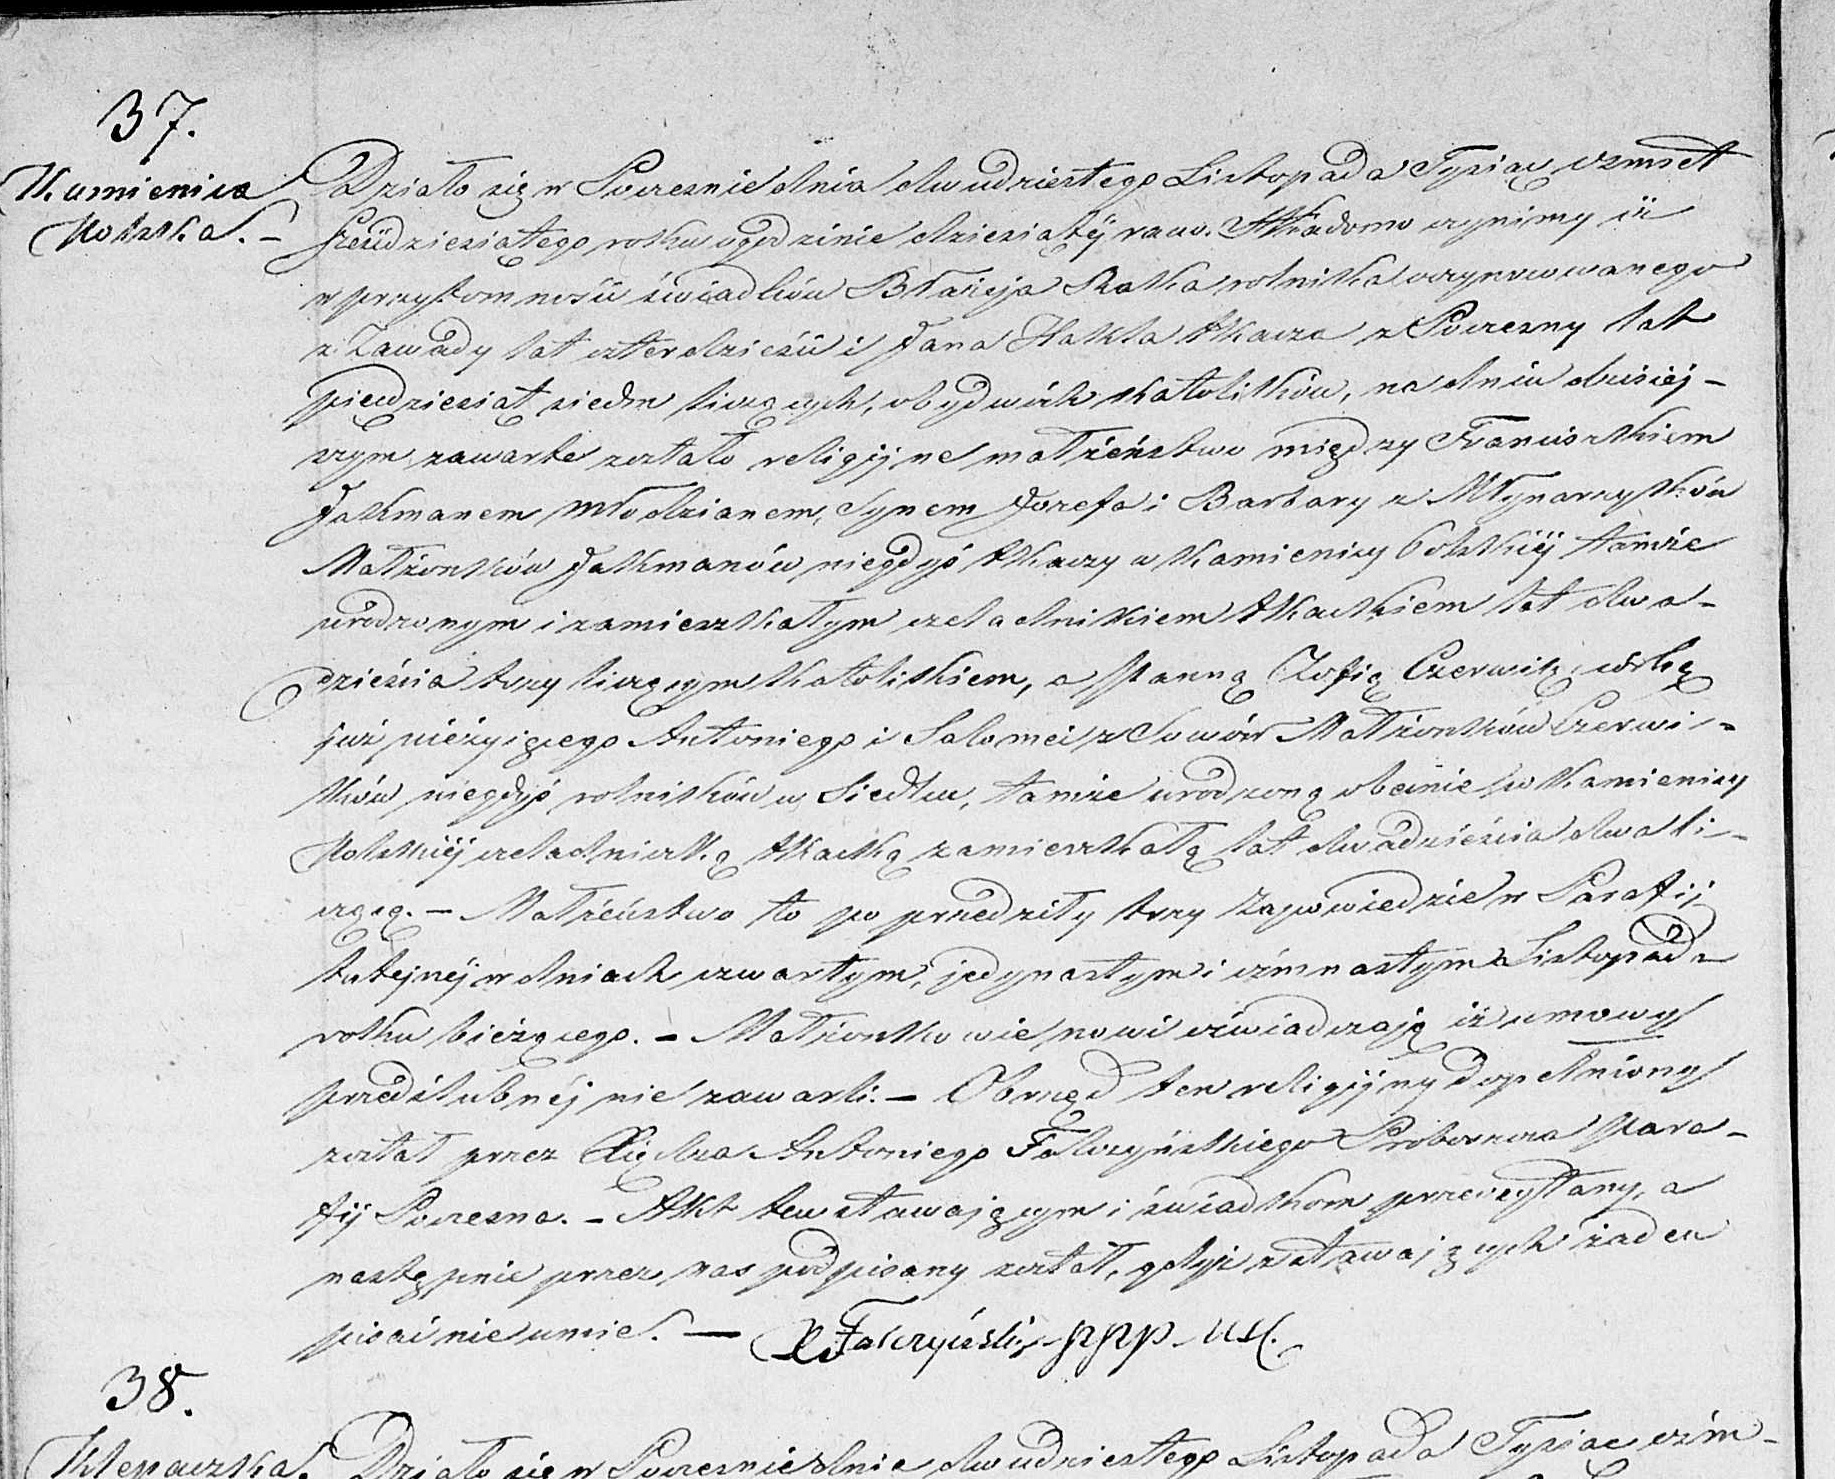 37.
Kamienica
Polska. –
Działo się w Poczesnie dnia dwudziestego Listopada Tysiąc ośmset
sześdziesiątego roku o godzinie dziesiątéj rano. Wiadomo czynimy iż
w przytomności świadków Błażeja Ratka rolnika oczynszowanego
z Zawady lat czterdzieści i Jana Halkla tkacza z Poczesny lat
piędziesiąt siedm liczących, obydwóch katolików, na dniu dzisiej-
szym zawarte zostało religijne małżeństwo między Franciszkiem
Jakmanem młodzianem, synem Jozefa i Barbary z Młynarzyków
Małżonków Jakmanów niegdyś tkaczy w Kamienicy Polskiéj tamże
urodzonym i zamieszkałym czeladnikiem tkackiem lat dwa-
dzieścia trzy liczącym katolikiem, a Panną Zofią Czerwik, córką
już nieżyjącego Antoniego i Salomei z Sowów Małżonków Czerwi-
ków niegdyś rolników w Siedlcu, tamże urodzoną obecnie w Kamienicy
Polskiéj czeladniczką tkacką zamieszkałą lat dwadzieścia dwa li-
czącą. – Małżeństwo to poprzedziły trzy Zapowiedzie w Parafij
tutejszéj w dniach czwartym, jedynastym i ośmnastym Listopada
roku bieżącego. – Małżonkowie nowi oświadczają iż umowy
przedślubnéj nie zawarli. – Obrzęd ten religijny dopełniony
został przez Xiędza Antoniego Falczyńskiego Proboszcza Para-
fij Poczesna. – Akt ten stawającym i świadkom przeczytany, a
następnie przez nas podpisany został, gdyż z stawających żaden
pisać nie umie. — X Falczyński
38.
Klepaczka.
Działo się w Poczesnie dnia dwudziestego Listopada Tysiąc ośm-